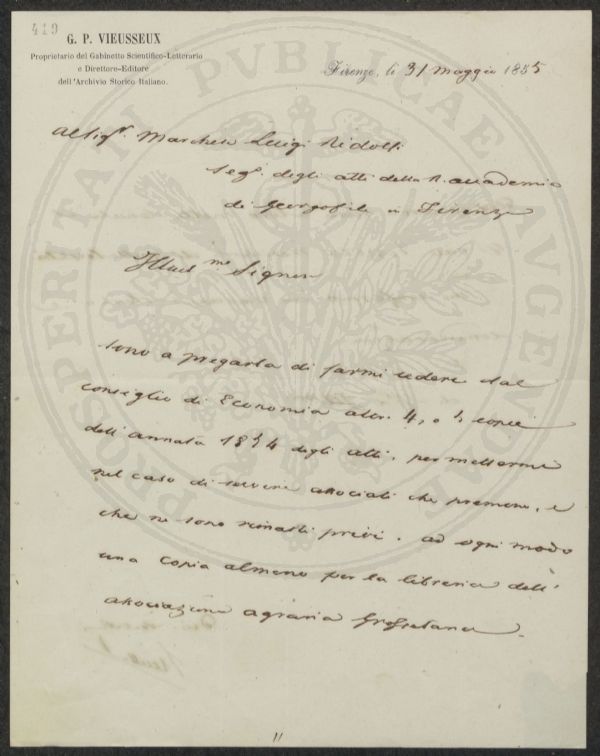 419
G. P. VIEUSSEUX
Proprietario del Gabinetto Scientifico-Letterario
e Direttore-Editore
dell'Archivio Storico Italiano.
Firenze, li 31 Maggio 1855
Al Sigr. Marchese Luigi Ridolfi
Segr. degli atti della R. accademia
de Georgofili in Firenze
Illusmo Signore
Sono a pregarla di farmi cedere dal
consiglio di Economia altr. 4, o 5 copie
dell'annata 1854 degli atti, per mettermi
nel caso di servire associati che premono, e
che ne sono rimasti privi. ad ogni modo
una copia almeno per la libreria dell'
associazione agraria Grossetana.
PROSPERITATI PUBLICAE AUGENDAE